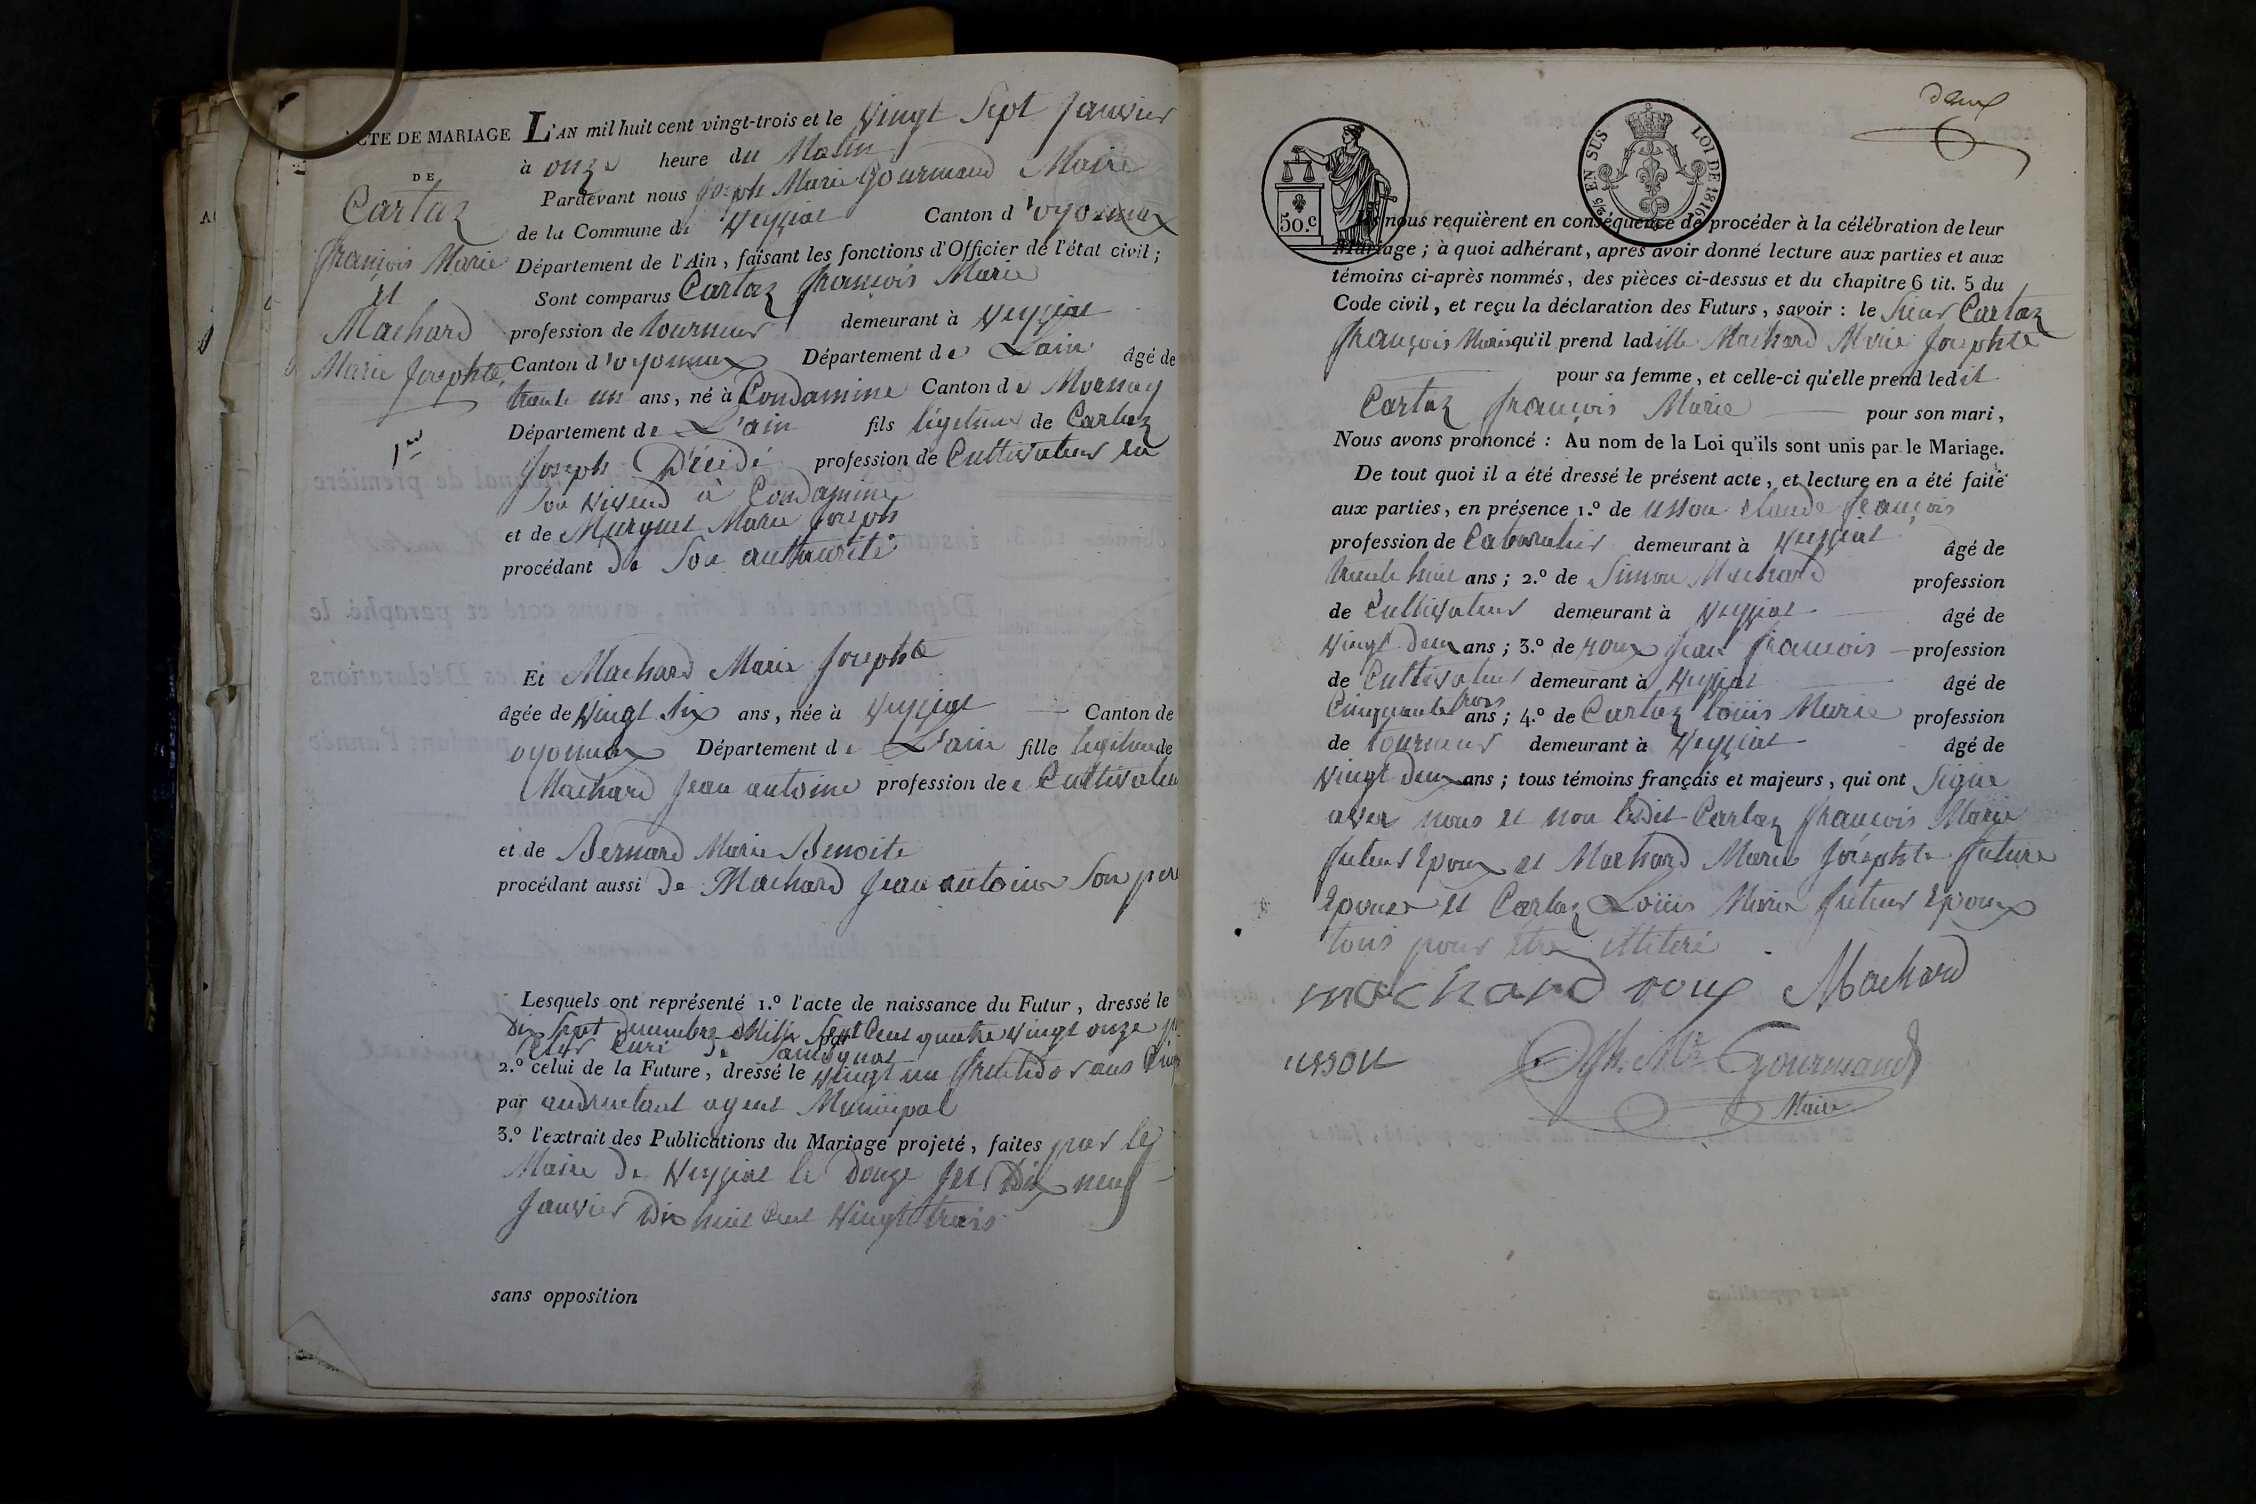 ACTE DE MARIAGE
DE
Cartaz
françois Marie
et
Machard
Marie Josephte
1re
L'AN mil huit cent vingt-trois et le Vingt Sept Janvier
à onze heure du Matin
Pardevant nous Joseph Marie Gourmand Maire
de la Commune de Veyziat Canton d'oyonnax
Département de l'Ain, faisant les fonctions d'Officier de l'état civil;
Sont comparus Cartaz françois Marie
profession de tourneur demeurant à Veyziat
Canton d'oyonnax Département de L'ain âgé de
trente un ans, né à Condamine Canton de Mornay
Département de L'ain fils légitime de Cartaz
Joseph Décédé profession de Cultivateur en
son vivend à Condamine
et de Murquet Marie Joseph
procédant de Son authaurité
Et Machard Marie Josephte
âgée de Vingt Six ans, née à Veyziat Canton de
oyonnax Département de L'ain fille legitime de
Machard Jean antoine profession de Cultivateu
et de Bernard Marie Benoite
procédant aussi de Machard Jean antoine Son pere
Lesquels ont représenté 1.º l'acte de naissance du Futur, dressé le
Dix Sept Mille Sept Cent quatre vingt onze par
Curé de Samognat
2.º celui de la Future, dressé le Vingt un fructidor ans
par agent Municipal
3.º l'extrait des Publications du Mariage projeté, faites par le
Maire de Veyziat le Douze et Dix neuf
Janvier Dix huit Cent Vingt trois
sans opposition
deux
50.C
EN SUS
LOI DE 1816
nous requièrent en conséquence de procéder à la célébration de leur
Mariage; à quoi adhérant, après avoir donné lecture aux parties et aux
témoins ci-après nommés, des pièces ci-dessus et du chapitre 6 tit. 5 du
Code civil, et reçu la déclaration des Futurs, savoir : le Sieur Cartaz
françois Marie qu'il prend ladille Machard Marie Josephte
pour sa femme, et celle-ci qu'elle prend ledit
Cartaz françois Marie pour son mari,
Nous avons prononcé : Au nom de la Loi qu'ils sont unis par le Mariage.
De tout quoi il a été dressé le présent acte, et lecture en a été faite
aux parties, en présence 1.º de usson claude françois
profession de Cabaratier demeurant à Veyziat âgé de
trente huit ans; 2.º de Simon Machard profession
de Cultivateur demeurant à Veyziat âgé de
Vingt deux ans; 3.º de roux Jean françois profession
de Cultivateur demeurant à Veyziat âgé de
Cinquante trois ans; 4.º de Cartaz louis Marie profession
de tourneur demeurant à Veyziat âgé de
Vingt deux ans; tous témoins français et majeurs, qui ont Signé
avec nous et non ledit Cartaz françois Marie
futur Epoux et Machard Marie Josephte future
Epouse et Cartaz Louis Marie futur Epoux
tous pour être illiteré
machard roux Machard
usson Jph. Mie Gourmand
Maire